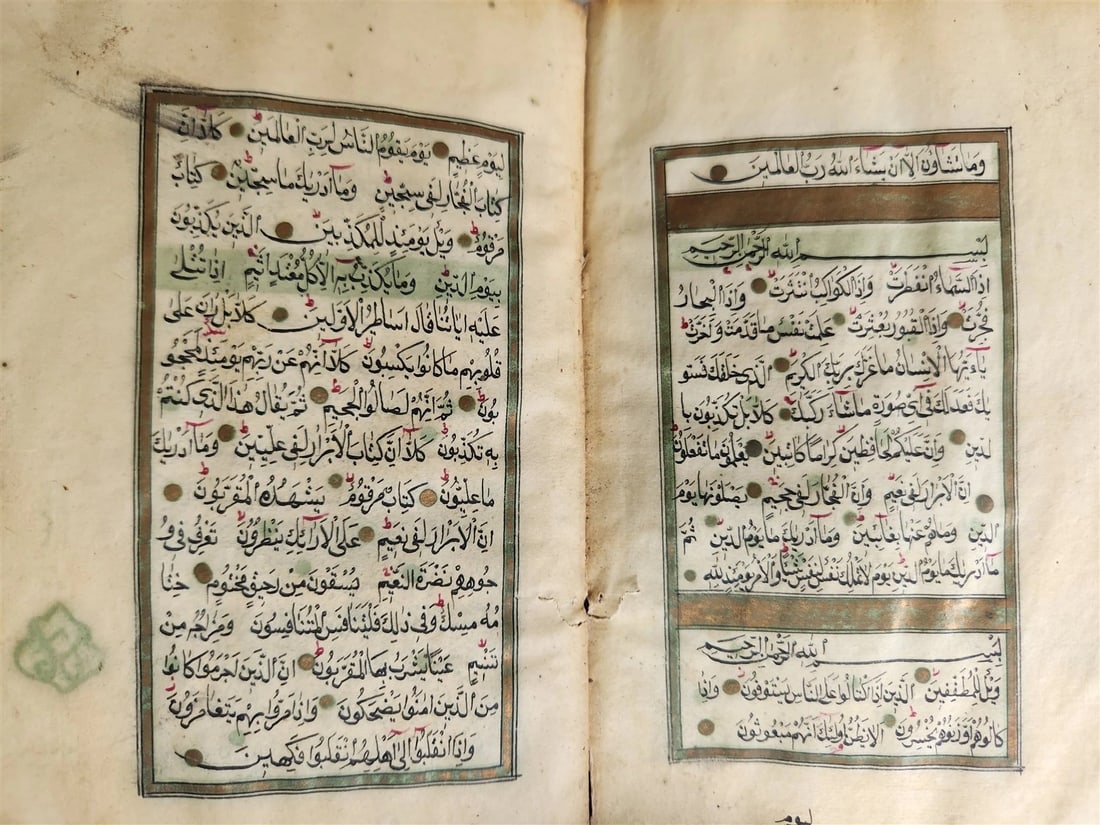 وما تشاؤن الا ان يشاء الله رب العالمين
بسم الله الرحمن الرحيم
اذا السماء انفطرت واذا الكواكب انتثرت واذا البحار
فجرت واذا القبور بعثرت علمت نفس ما قدمت واخرت
يا ءيها الانسان ما غرك بربك الكريم الذي خلقك فسو
يك فعدلك في اي صورة ما شاء ركبك كلا بل تكذبون با
لدين وان عليكم لحافظين كراما كاتبين يعلمون ما تفعلون
ان الابرار لفي نعيم وان الفجار لفي جحيم يصلونها يوم
الدين وما هم عنها بغائبين وما ادريك ما يوم الدين ثم
ما ادريك ما يوم الدين يوم لا تملك نفس لنفس شيئا والامر يومئذ لله
بسم الله الرحمن الرحيم
ويل للمطففين الذين اذا كتالوا على الناس يستوفون واذا
كالوهم او وزنوهم يخسرون الا يظن اولئك انهم مبعوثون
ليوم
ليوم عظيم يوم يقوم الناس لرب العالمين كلا ان
كتاب الفجار لفي سجين وما ادريك ما سجين كتاب
مرقوم ويل يومئذ للمكذبين الذين يكذبون
بيوم الدين وما يكذب به الا كل معتد اثيم اذا تتلى
عليه اياتنا قال اساطير الاولين كلا بل ران على
قلوبهم ما كانوا يكسبون كلا انهم عن ربهم يومئذ لمحجو
بون ثم انهم لصالوا الجحيم ثم يقال هذا الذي كنتم
به تكذبون كلا ان كتاب الابرار لفي عليين وما ادريك
ما عليون كتاب مرقوم يشهده المقربون
ان الابرار لفي نعيم على الارائك ينظرون تعرف في و
جوههم نضرة النعيم يسقون من رحيق مختوم ختا
مه مسك وفي ذلك فليتنافس المتنافسون ومزاجه من
تسنيم عينا يشرب بها المقربون ان الذين اجرموا كانوا
من الذين امنوا يضحكون واذا مروا بهم يتغامزون
واذا انقلبوا الى اهلهم انقلبوا فكهين